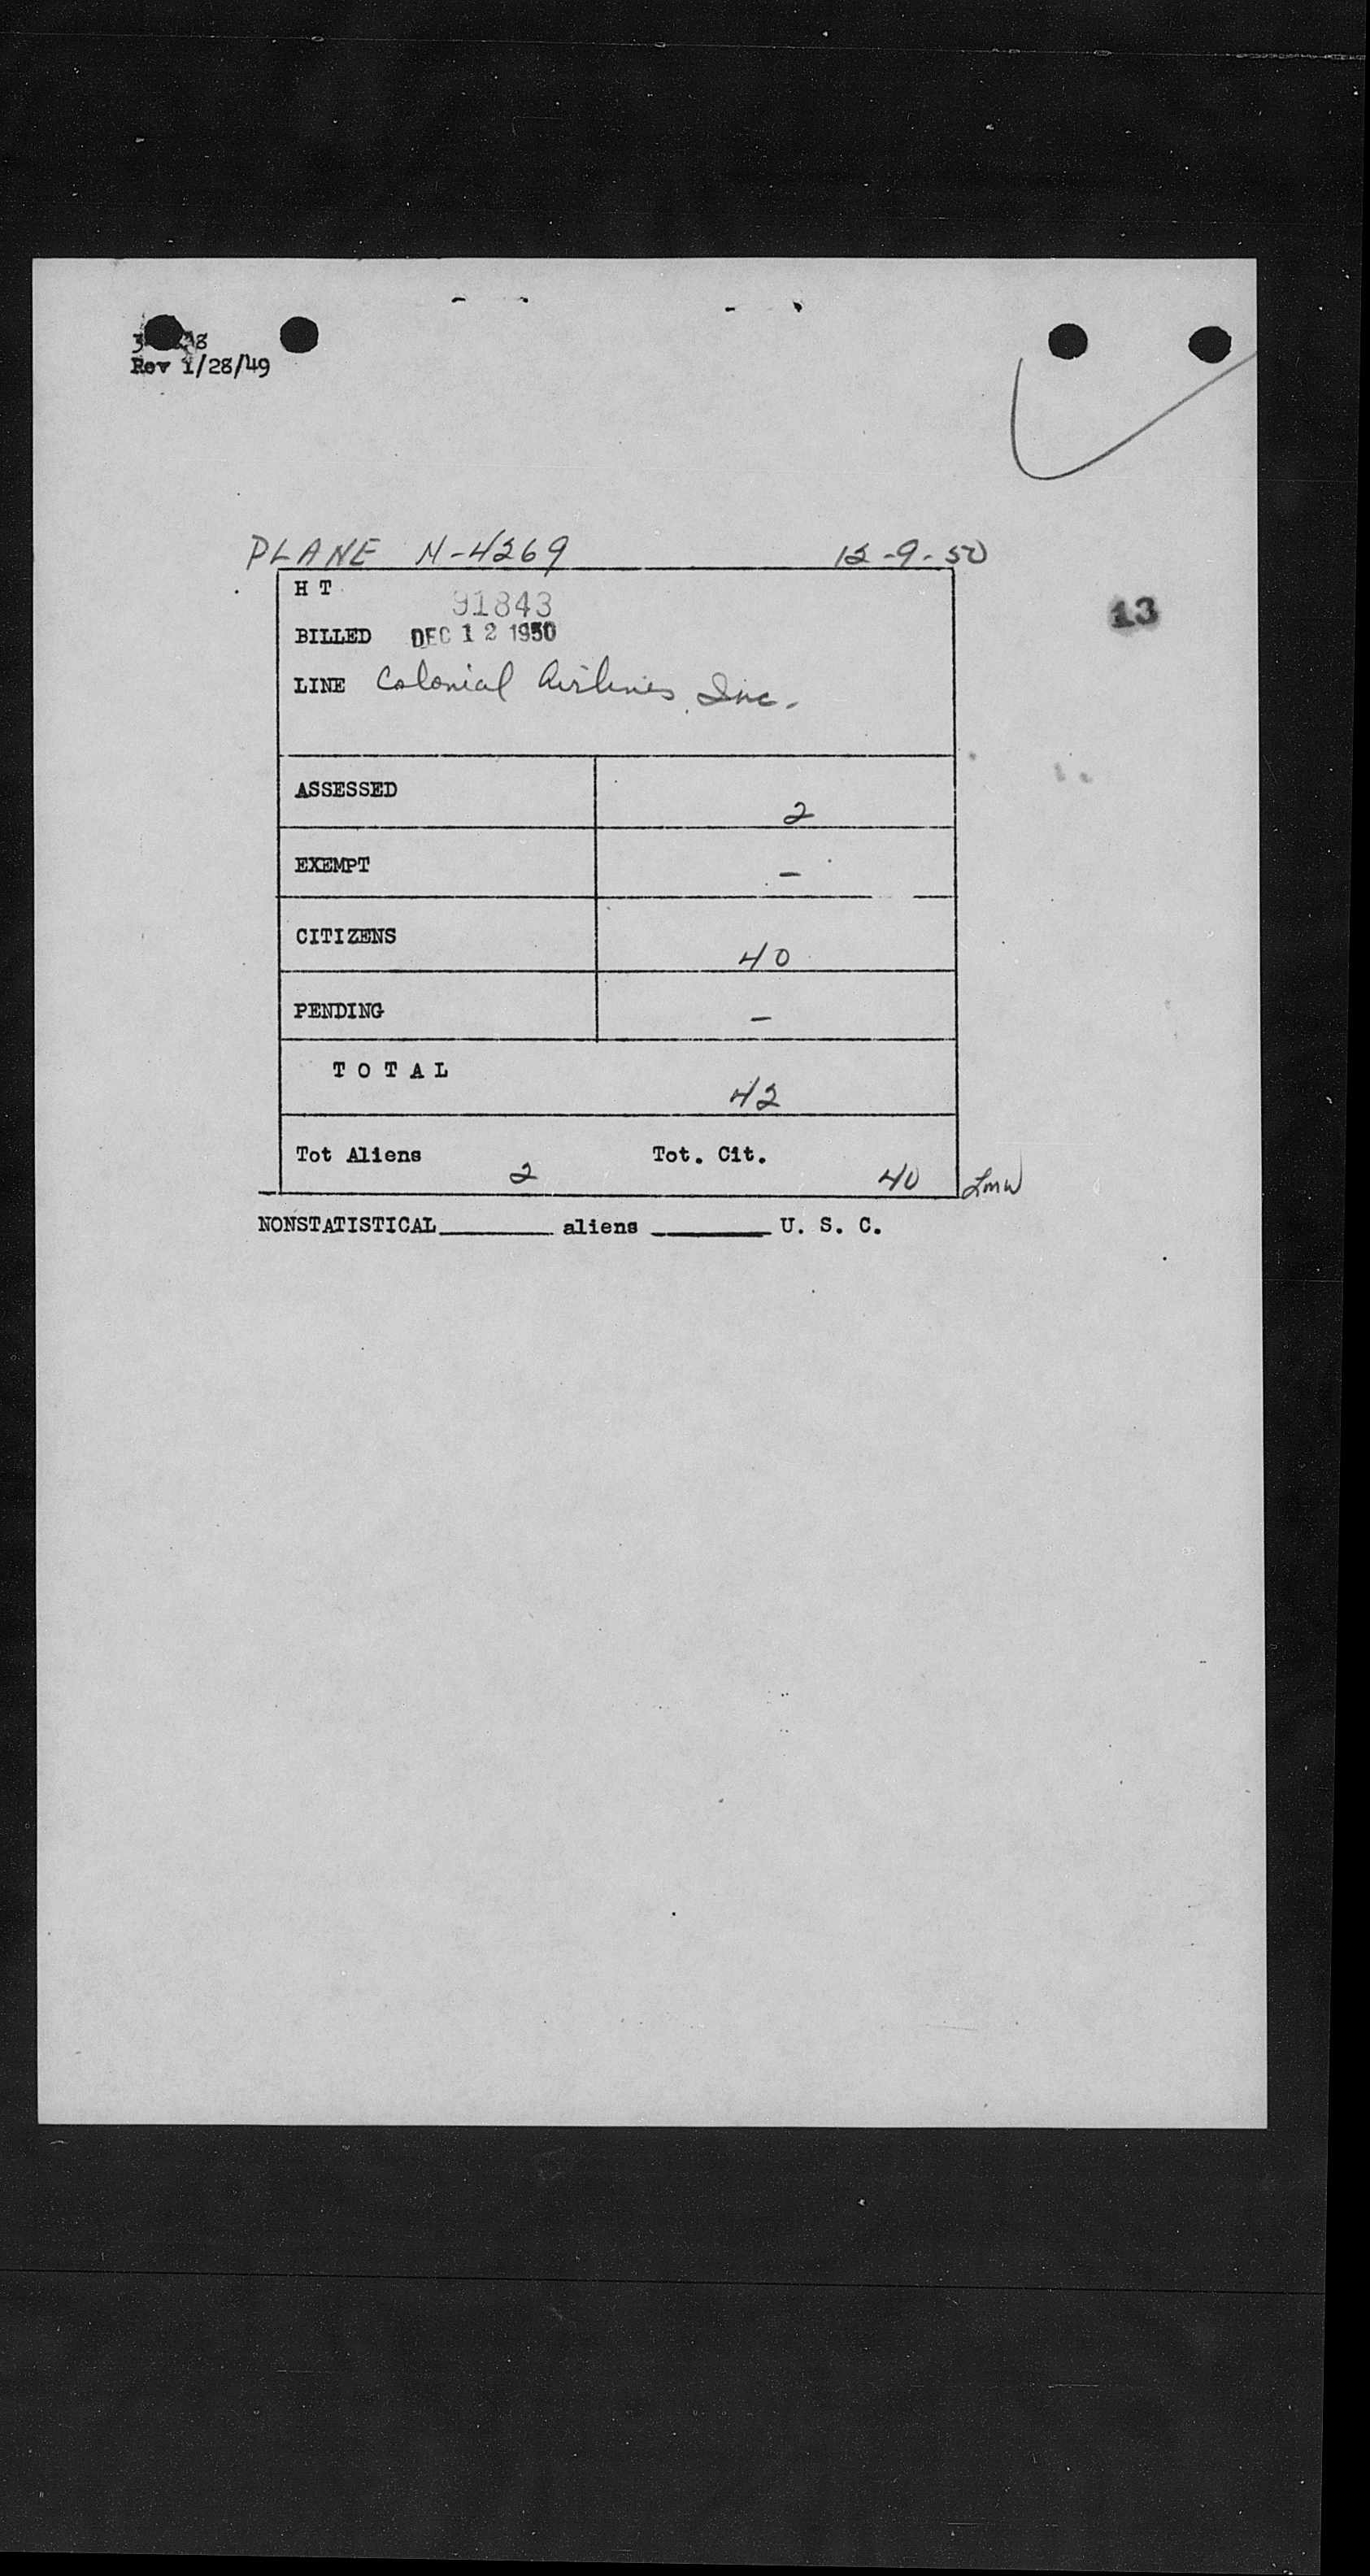 Rev 1/28/49
PLANE N-4269 12-9-50
H T 91843
13
BILLED DEC 12 1950
LINE Colonial Airlines, Inc.
ASSESSED 2
EXEMPT -
CITIZENS 40
PENDING -
TOTAL 42
Tot Aliens 2 Tot. Cit. 40 LMW
NONSTATISTICAL________ aliens ________ U. S. C.